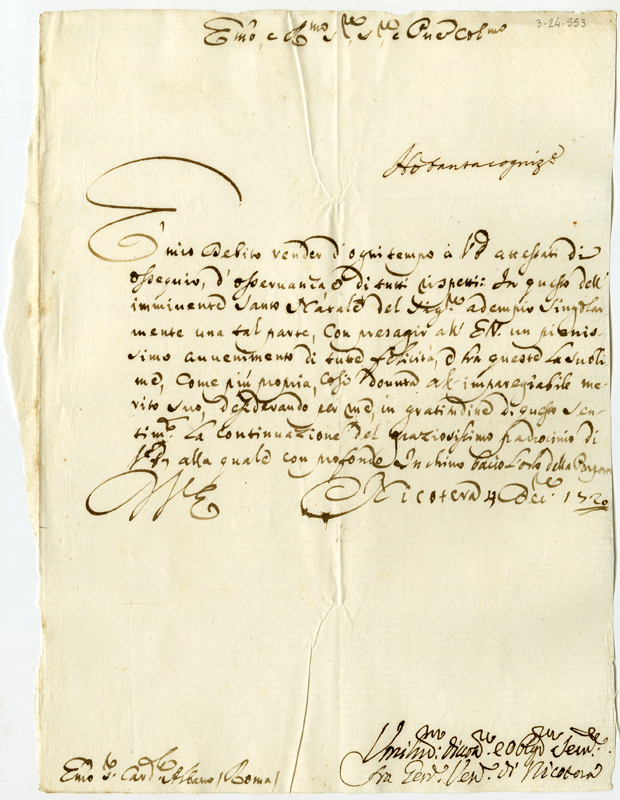 Emo, e Rmo Sre, Sre e Pne Colmo
3-24-553
È mio debito render d'ogni tempo à V.E. attestati di
ossequio, d'osservanza, e di tutti rispetti: In questo dell'
imminente Santo Natale del Sigre adempio singolar
mente una tal parte, con presagir all' E.V. un pienis
simo avvenimento di tutte felicità, e tra queste la subli
me, come più propria, così dovuta all' impareggiabile me
rito suo, desiderando per me, in gratitudine di questo sen
timto la continuazione del graziosissimo padrocinio di
V.E. alla quale con profondo inchino bacio l'orlo della Porpora
Di V.E. Nicotera 4 Dec.e 1720
Umilmo: divotmo e Obligmo Serv.re
fra Vesc.o di Nicotera
Emo Sr. Cardle Albano / Roma /